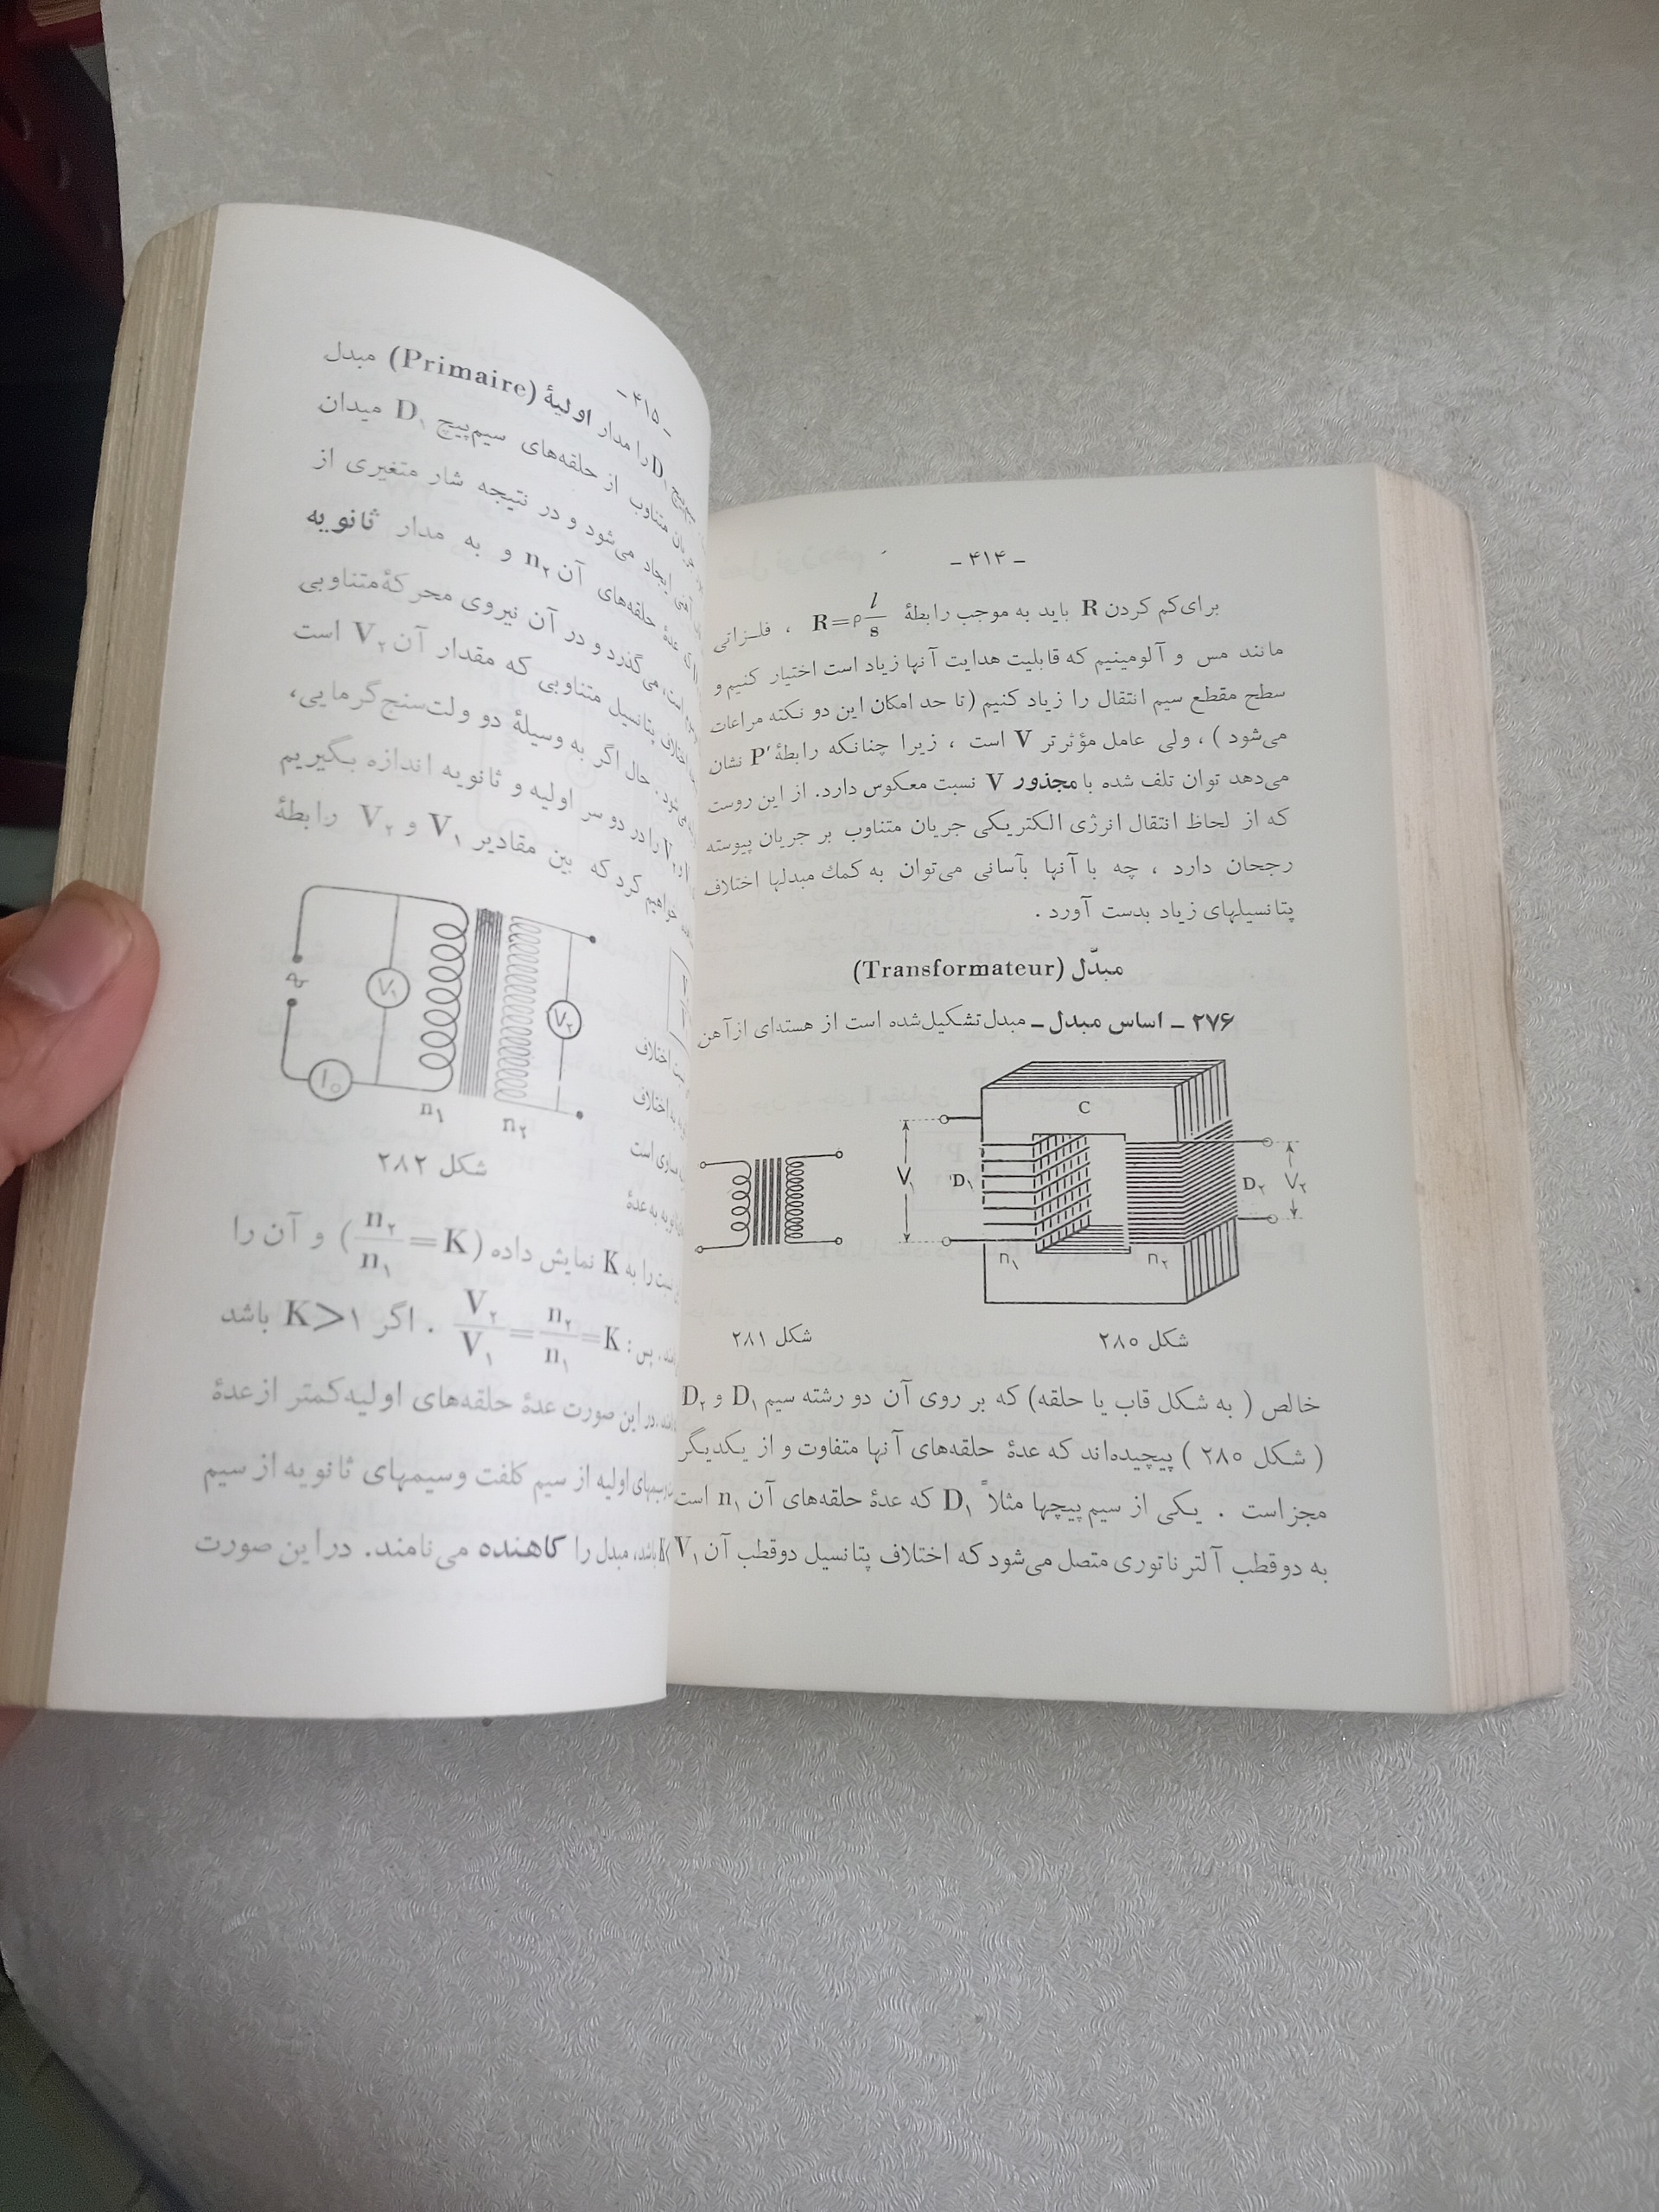 - ۴۱۴ -
برای کم کردن R باید به موجب رابطهٔ R=ρ l/s ، فلـزاتی
مانند مس و آلومینیم که قابلیت هدایت آنها زیاد است اختیار کنیم و
سطح مقطع سیم انتقال را زیاد کنیم (تا حد امکان این دو نکته مراعات
می‌شود ) ، ولی عامل مؤثرتر V است ، زیرا چنانکه رابطهٔ P′ نشان
می‌دهد توان تلف شده با مجذور V نسبت معکوس دارد. از این روست
که از لحاظ انتقال انرژی الکتریکی جریان متناوب بر جریان پیوسته
رجحان دارد ، چه با آنها بآسانی می‌توان به کمك مبدلها اختلاف
پتانسیلهای زیاد بدست آورد .
مبدّل (Transformateur)
۲۷۶ ـ اساس مبدل ـ مبدل تشکیل‌شده است از هسته‌ای ازآهن
C
V۱ D۱ D۲ V۲
n۱ n۲
شکل ۲۸۰
شکل ۲۸۱
خالص ( به شکل قاب یا حلقه) که بر روی آن دو رشته سیم D۱ و D۲
( شکل ۲۸۰ ) پیچیده‌اند که عدهٔ حلقه‌های آنها متفاوت و از یکدیگر
مجز است . یکی از سیم پیچها مثلاً D۱ که عدهٔ حلقه‌های آن n۱ است
به دو قطب آلترناتوری متصل می‌شود که اختلاف پتانسیل دوقطب آن V۱
- ۴۱۵ -
D۱ را مدار اولیهٔ (Primaire) مبدل
متناوب از حلقه‌های سیم‌پیچ D۱ میدان
ایجاد می‌شود و در نتیجه شار متغیری از
عدهٔ حلقه‌های آن n۲ و به مدار ثانویه
است، می‌گذرد و در آن نیروی محرکهٔ متناوبی
اختلاف پتانسیل متناوبی که مقدار آن V۲ است
حال اگر به وسیلهٔ دو ولت‌سنج گرمایی،
V۲ را در دو سر اولیه و ثانویه اندازه بگیریم
خواهیم کرد که بین مقادیر V۱ و V۲ رابطهٔ
V۱ V۲
I۰
n۱ n۲
اختلاف
اختلاف
است
به عدهٔ
شکل ۲۸۲
را به K نمایش داده (n۲/n۱=K) و آن را
پس : V۲/V۱=n۲/n۱=K . اگر K>۱ باشد
در این صورت عدهٔ حلقه‌های اولیه کمتر از عدهٔ
سیمهای اولیه از سیم کلفت و سیمهای ثانویه از سیم
باشد، مبدل را کاهنده می‌نامند. در این صورت